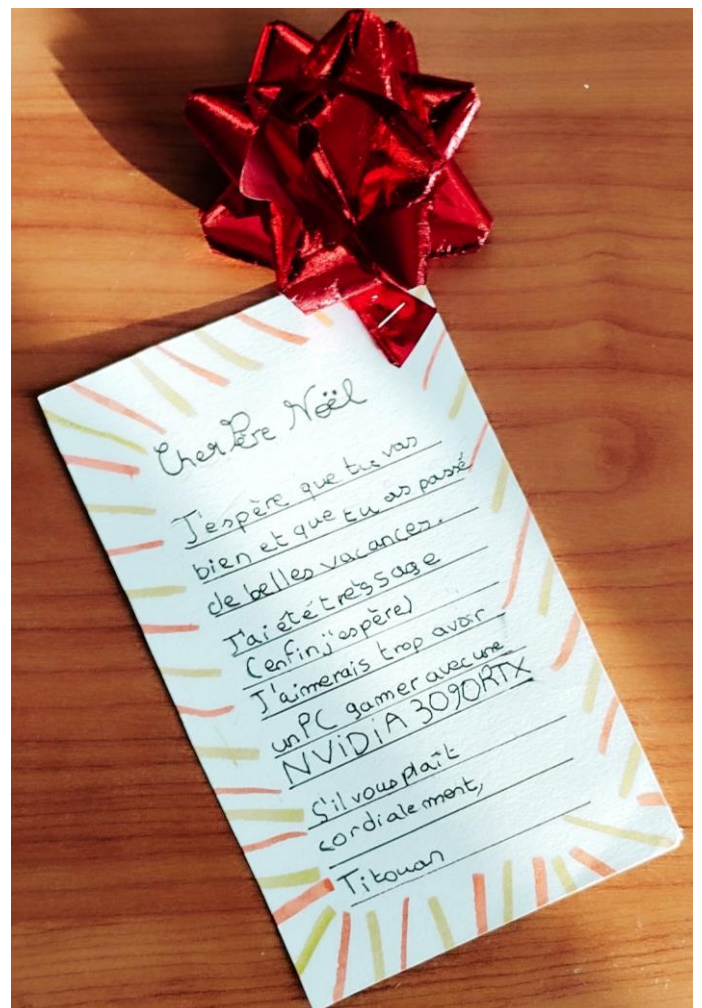 Cher Père Noël
J'espère que tu vas
bien et que tu as passé
de belles vacances.
J'ai été très sage
(enfin j'espère)
J'aimerais trop avoir
un PC gamer avec une
NViDiA 3090RTX
S'il vous plaît
cordialement,
Titouan